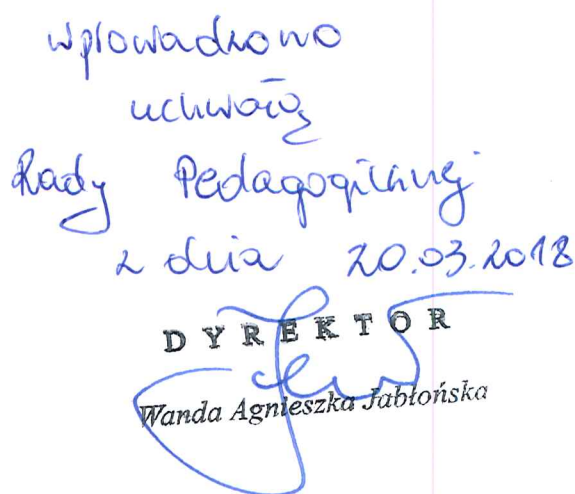 wprowadzono
uchwałą
Rady Pedagogicznej
z dnia 20.03.2018
DYREKTOR
Wanda Agnieszka Jabłońska